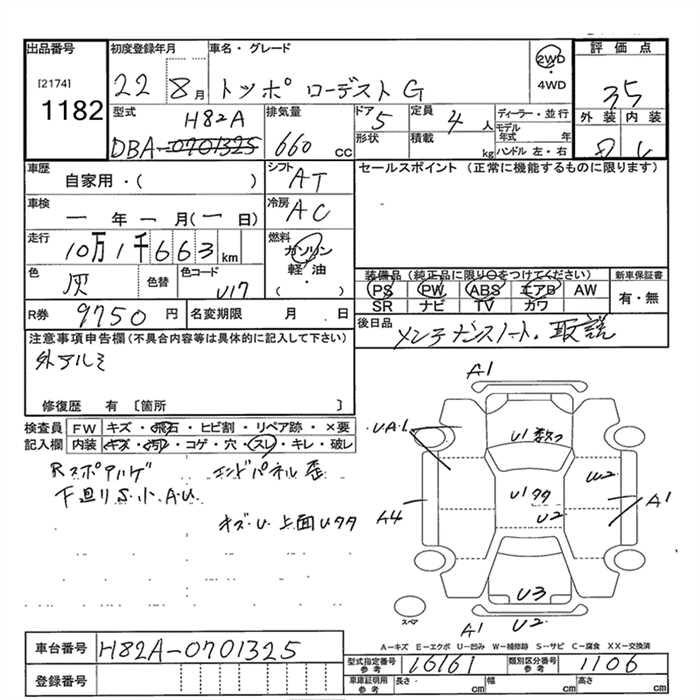 出品番号 初度登録年月 車名・グレード 2WD ・4WD 評価点
[2174] 1182 22 8月 トッポ ローデスト G 35
型式 DBA-0701325 H82A 排気量 660 cc ドア 5 形状 定員 4人 積載 kg ディーラー・並行 モデル年式 年 ハンドル 左・右 外装 内装
車歴 自家用・( ) シフト AT セールスポイント (正常に機能するものに限ります)
車検 一年一月(一日) 冷房 AC
走行 10万1千663km 燃料 ガソリン 軽油・( )
色 灰 色替 色コード U17 装備品(純正品に限り○をつけてください) 新車保証書
PS PW ABS エアB AW 有・無
SR ナビ TV カワ
R券 9750円 名変期限 月 日 後日品 メンテナンスノート、取説
注意事項申告欄(不具合内容等は具体的に記入して下さい)
外アルミ
修復歴 有〔箇所 〕
検査員 FW キズ・飛石・ヒビ割・リペア跡・×要
記入欄 内装 キズ・汚れ・コゲ・穴・スレ・キレ・破レ
下廻りS.小、A.U. エンドパネル歪
A1
U1
U1
U2
A4
A1
U3
A1 U2
スペア
A-キズ E-エクボ U-凹み W-補修跡 S-サビ C-腐食 XX-交換済
車台番号 H82A-0701325 型式指定番号 参考 16161 類別区分番号 参考 1106
登録番号 車庫証明用 参考 長さ cm 幅 cm 高さ cm